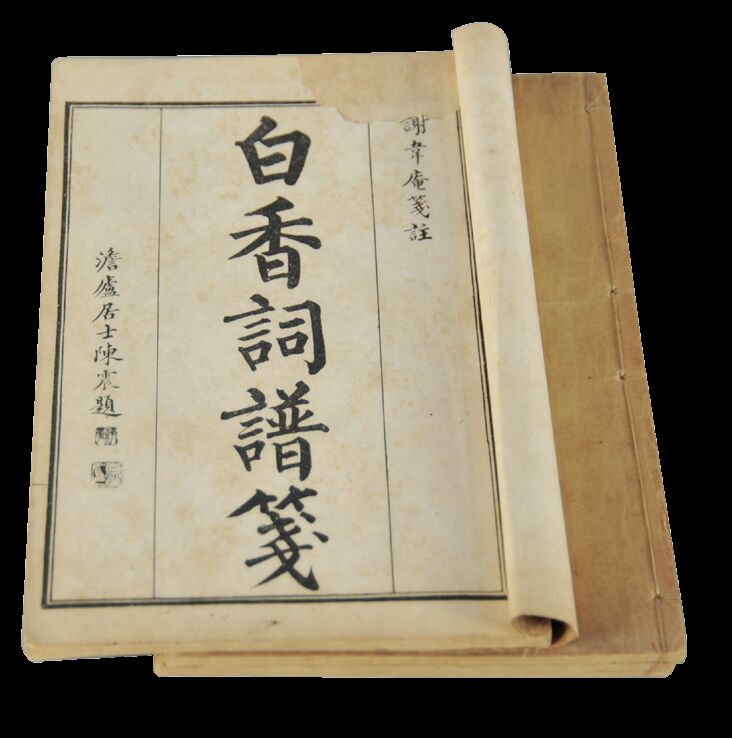 謝韋庵箋註
白香詞譜箋
澹廬居士陳震題